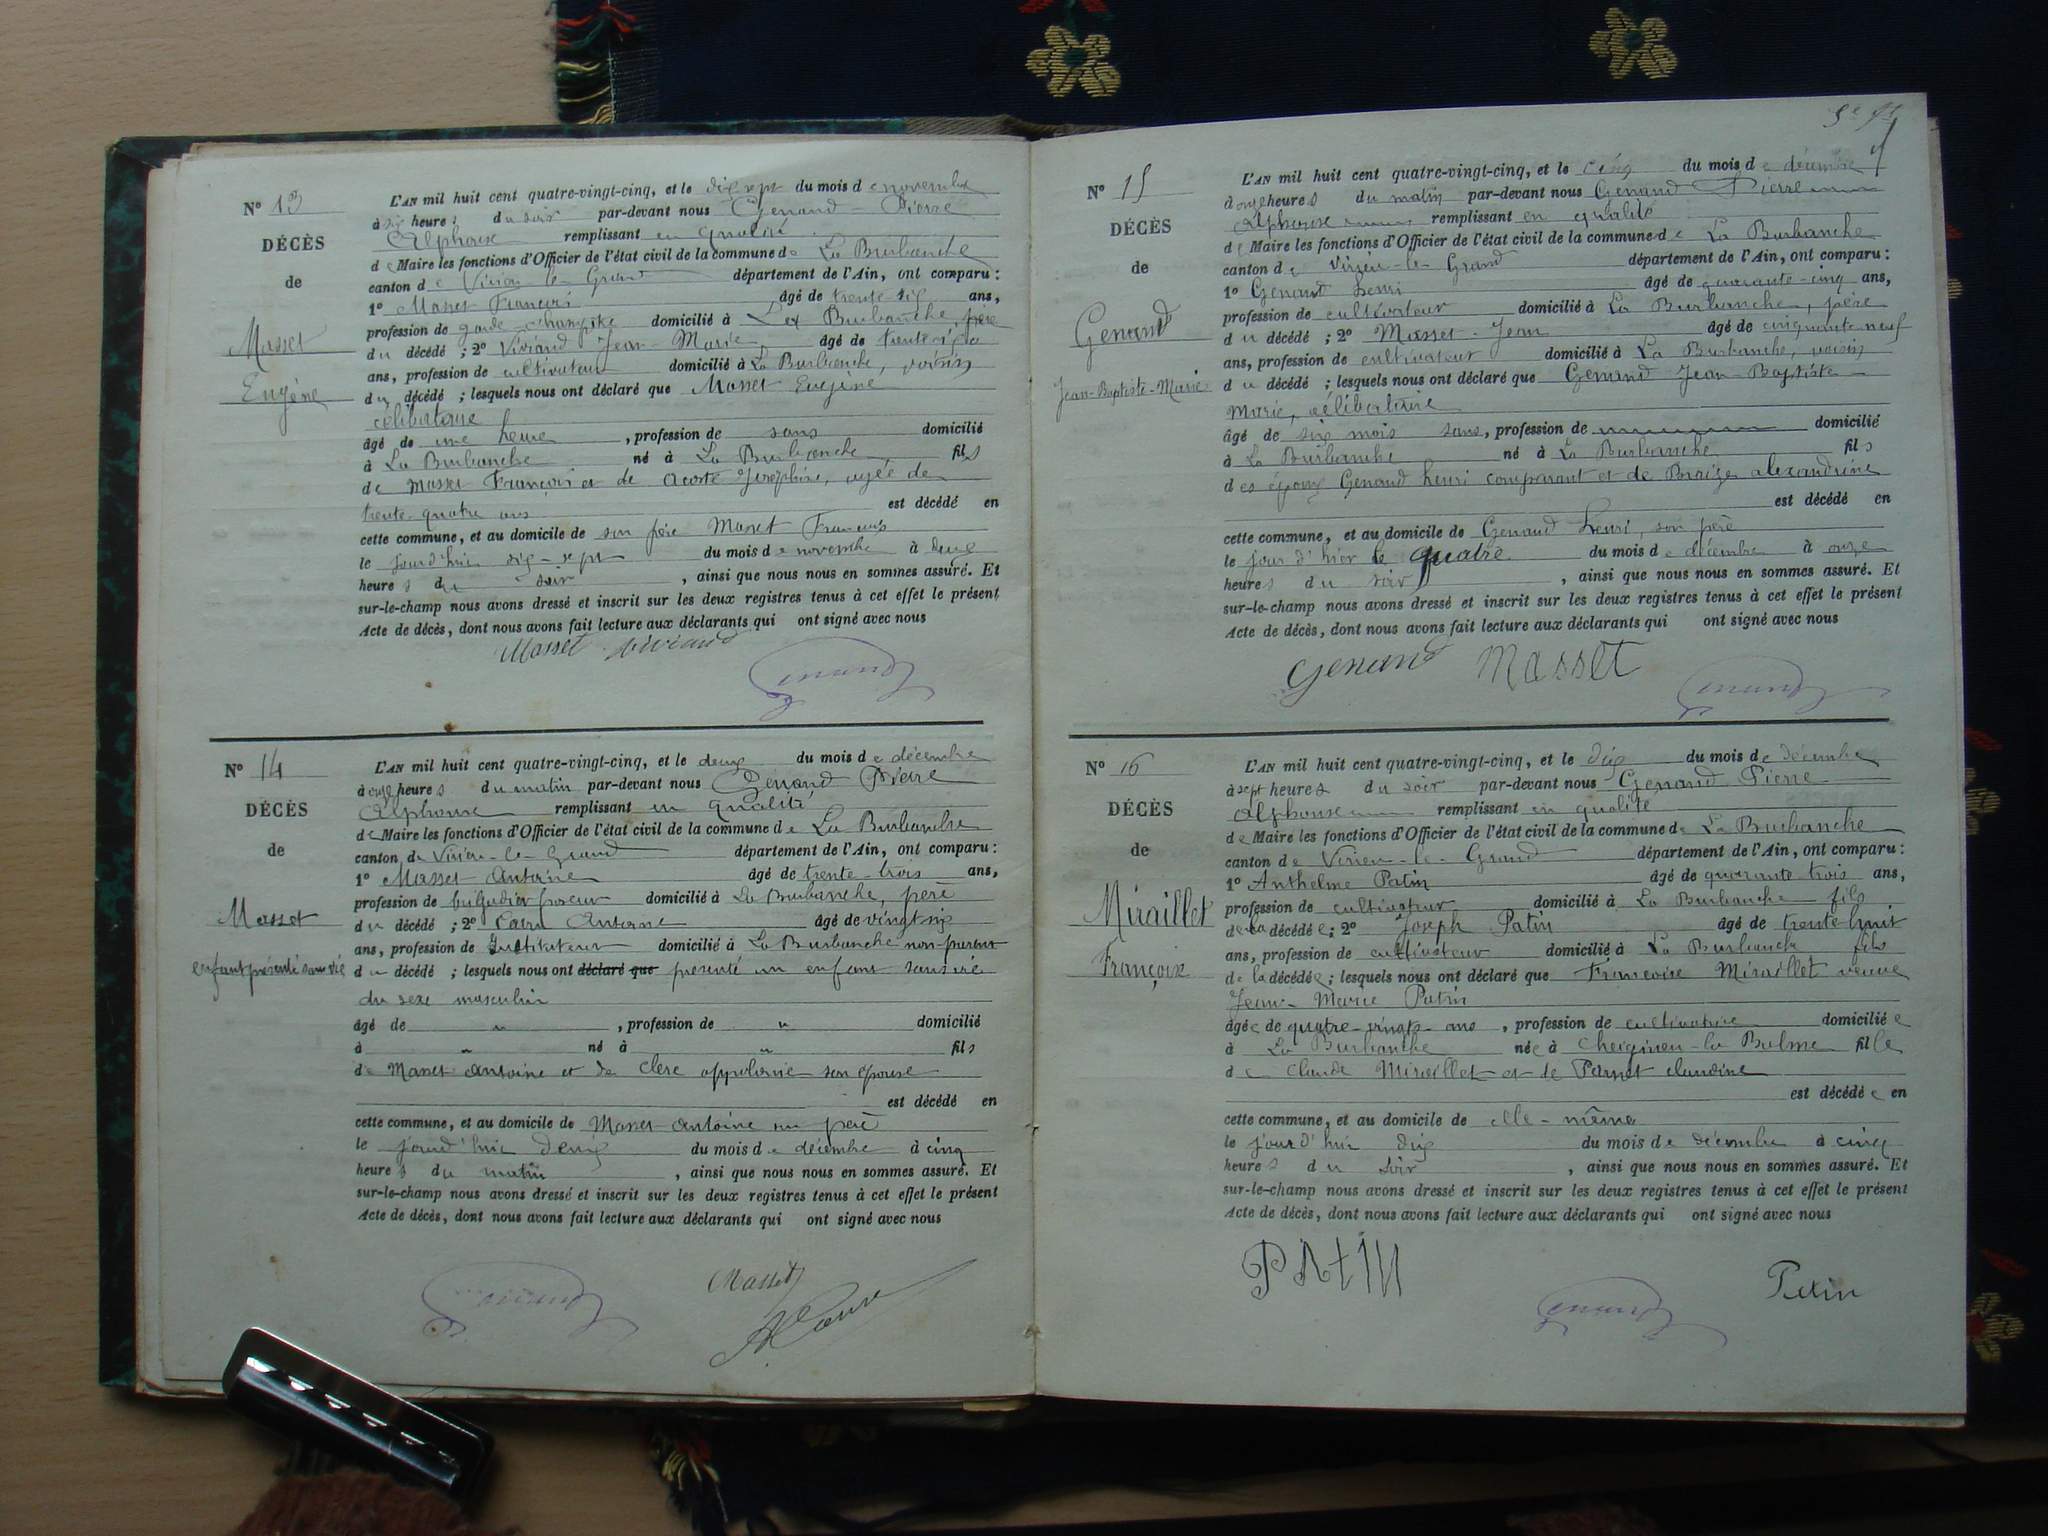 N° 13
DÉCÈS
de
Masset
Eugène
L'AN mil huit cent quatre-vingt-cinq, et le dix sept du mois de novembre
à six heures du soir par-devant nous Genand Pierre
Alphonse remplissant en qualité
de Maire les fonctions d'Officier de l'état civil de la commune de La Burbanche
canton de Virieu-le-Grand département de l'Ain, ont comparu :
1° Masset François âgé de trente-six ans,
profession de garde-champêtre domicilié à La Burbanche, père
du décédé ; 2° Viviand Jean-Marie, âgé de
ans, profession de cultivateur domicilié à La Burbanche, voisin
du décédé ; lesquels nous ont déclaré que Masset Eugène
célibataire
âgé de une heure , profession de sans domicilié
à La Burbanche né à La Burbanche fils
de Masset François et de Acoste Joséphine, agée de
trente-quatre ans est décédé en
cette commune, et au domicile de son père Masset François
le jourd'hui dix-sept du mois de novembre à deux
heures du soir , ainsi que nous nous en sommes assuré. Et
sur-le-champ nous avons dressé et inscrit sur les deux registres tenus à cet effet le présent
Acte de décès, dont nous avons fait lecture aux déclarants qui ont signé avec nous
Masset Viviand
Genand
N° 14
DÉCÈS
de
Masset
enfant présenté sans vie
L'AN mil huit cent quatre-vingt-cinq, et le deux du mois de décembre
à onze heures du matin par-devant nous Genand Pierre
Alphonse remplissant en qualité
de Maire les fonctions d'Officier de l'état civil de la commune de La Burbanche
canton de Virieu-le-Grand département de l'Ain, ont comparu :
1° Masset Antoine âgé de trente-trois ans,
profession de brigadier poseur domicilié à La Burbanche, père
du décédé ; 2° Antoine âgé de vingt six
ans, profession de Instituteur domicilié à La Burbanche non-parent
du décédé ; lesquels nous ont déclaré que présenté un enfant sans vie
du sexe masculin
âgé de " , profession de " domicilié
à " né à " fils
de Masset Antoine et de Clerc appolonie son épouse
est décédé en
cette commune, et au domicile de Masset Antoine son père
le jourd'hui deux du mois de décembre à cinq
heures du matin , ainsi que nous nous en sommes assuré. Et
sur-le-champ nous avons dressé et inscrit sur les deux registres tenus à cet effet le présent
Acte de décès, dont nous avons fait lecture aux déclarants qui ont signé avec nous
Masset
Genand
N° 15
DÉCÈS
de
Genand
Jean-Baptiste-Marie
L'AN mil huit cent quatre-vingt-cinq, et le cinq du mois de décembre
à onze heures du matin par-devant nous Genand Pierre
Alphonse remplissant en qualité
de Maire les fonctions d'Officier de l'état civil de la commune de La Burbanche
canton de Virieu-le-Grand département de l'Ain, ont comparu :
1° Genand henri âgé de quarante-cinq ans,
profession de cultivateur domicilié à La Burbanche, père
du décédé ; 2° Masset Jean âgé de cinquante neuf
ans, profession de cultivateur domicilié à La Burbanche, voisin
du décédé ; lesquels nous ont déclaré que Genand Jean-Baptiste
Marie, célibataire
âgé de six mois sans, profession de domicilié
à La Burbanche né à La Burbanche fils
des époux Genand henri comparant et de Braize alexandrine
est décédé en
cette commune, et au domicile de Genand henri, son père
le jour d'hier le quatre du mois de décembre à onze
heures du soir , ainsi que nous nous en sommes assuré. Et
sur-le-champ nous avons dressé et inscrit sur les deux registres tenus à cet effet le présent
Acte de décès, dont nous avons fait lecture aux déclarants qui ont signé avec nous
Genand Masset
Genand
N° 16
DÉCÈS
de
Miraillet
Françoise
L'AN mil huit cent quatre-vingt-cinq, et le dix du mois de décembre
à sept heures du soir par-devant nous Genand Pierre
Alphonse remplissant en qualité
de Maire les fonctions d'Officier de l'état civil de la commune de La Burbanche
canton de Virieu-le-Grand département de l'Ain, ont comparu :
1° Anthelme Patin âgé de quarante trois ans,
profession de cultivateur domicilié à La Burbanche fils
de la décédée ; 2° Joseph Patin âgé de trente-huit
ans, profession de cultivateur domicilié à La Burbanche fils
de la décédée ; lesquels nous ont déclaré que Françoise Miraillet veuve
Jean-Marie Patin
âgée de quatre-vingts-ans , profession de cultivatrice domiciliée
à La Burbanche née à Cheignieu-la Balme fille
de Claude Miraillet et de Pernet claudine
est décédée en
cette commune, et au domicile de elle-même
le jourd'hui dix du mois de décembre à cinq
heures du soir , ainsi que nous nous en sommes assuré. Et
sur-le-champ nous avons dressé et inscrit sur les deux registres tenus à cet effet le présent
Acte de décès, dont nous avons fait lecture aux déclarants qui ont signé avec nous
PAtIN
Genand
Patin